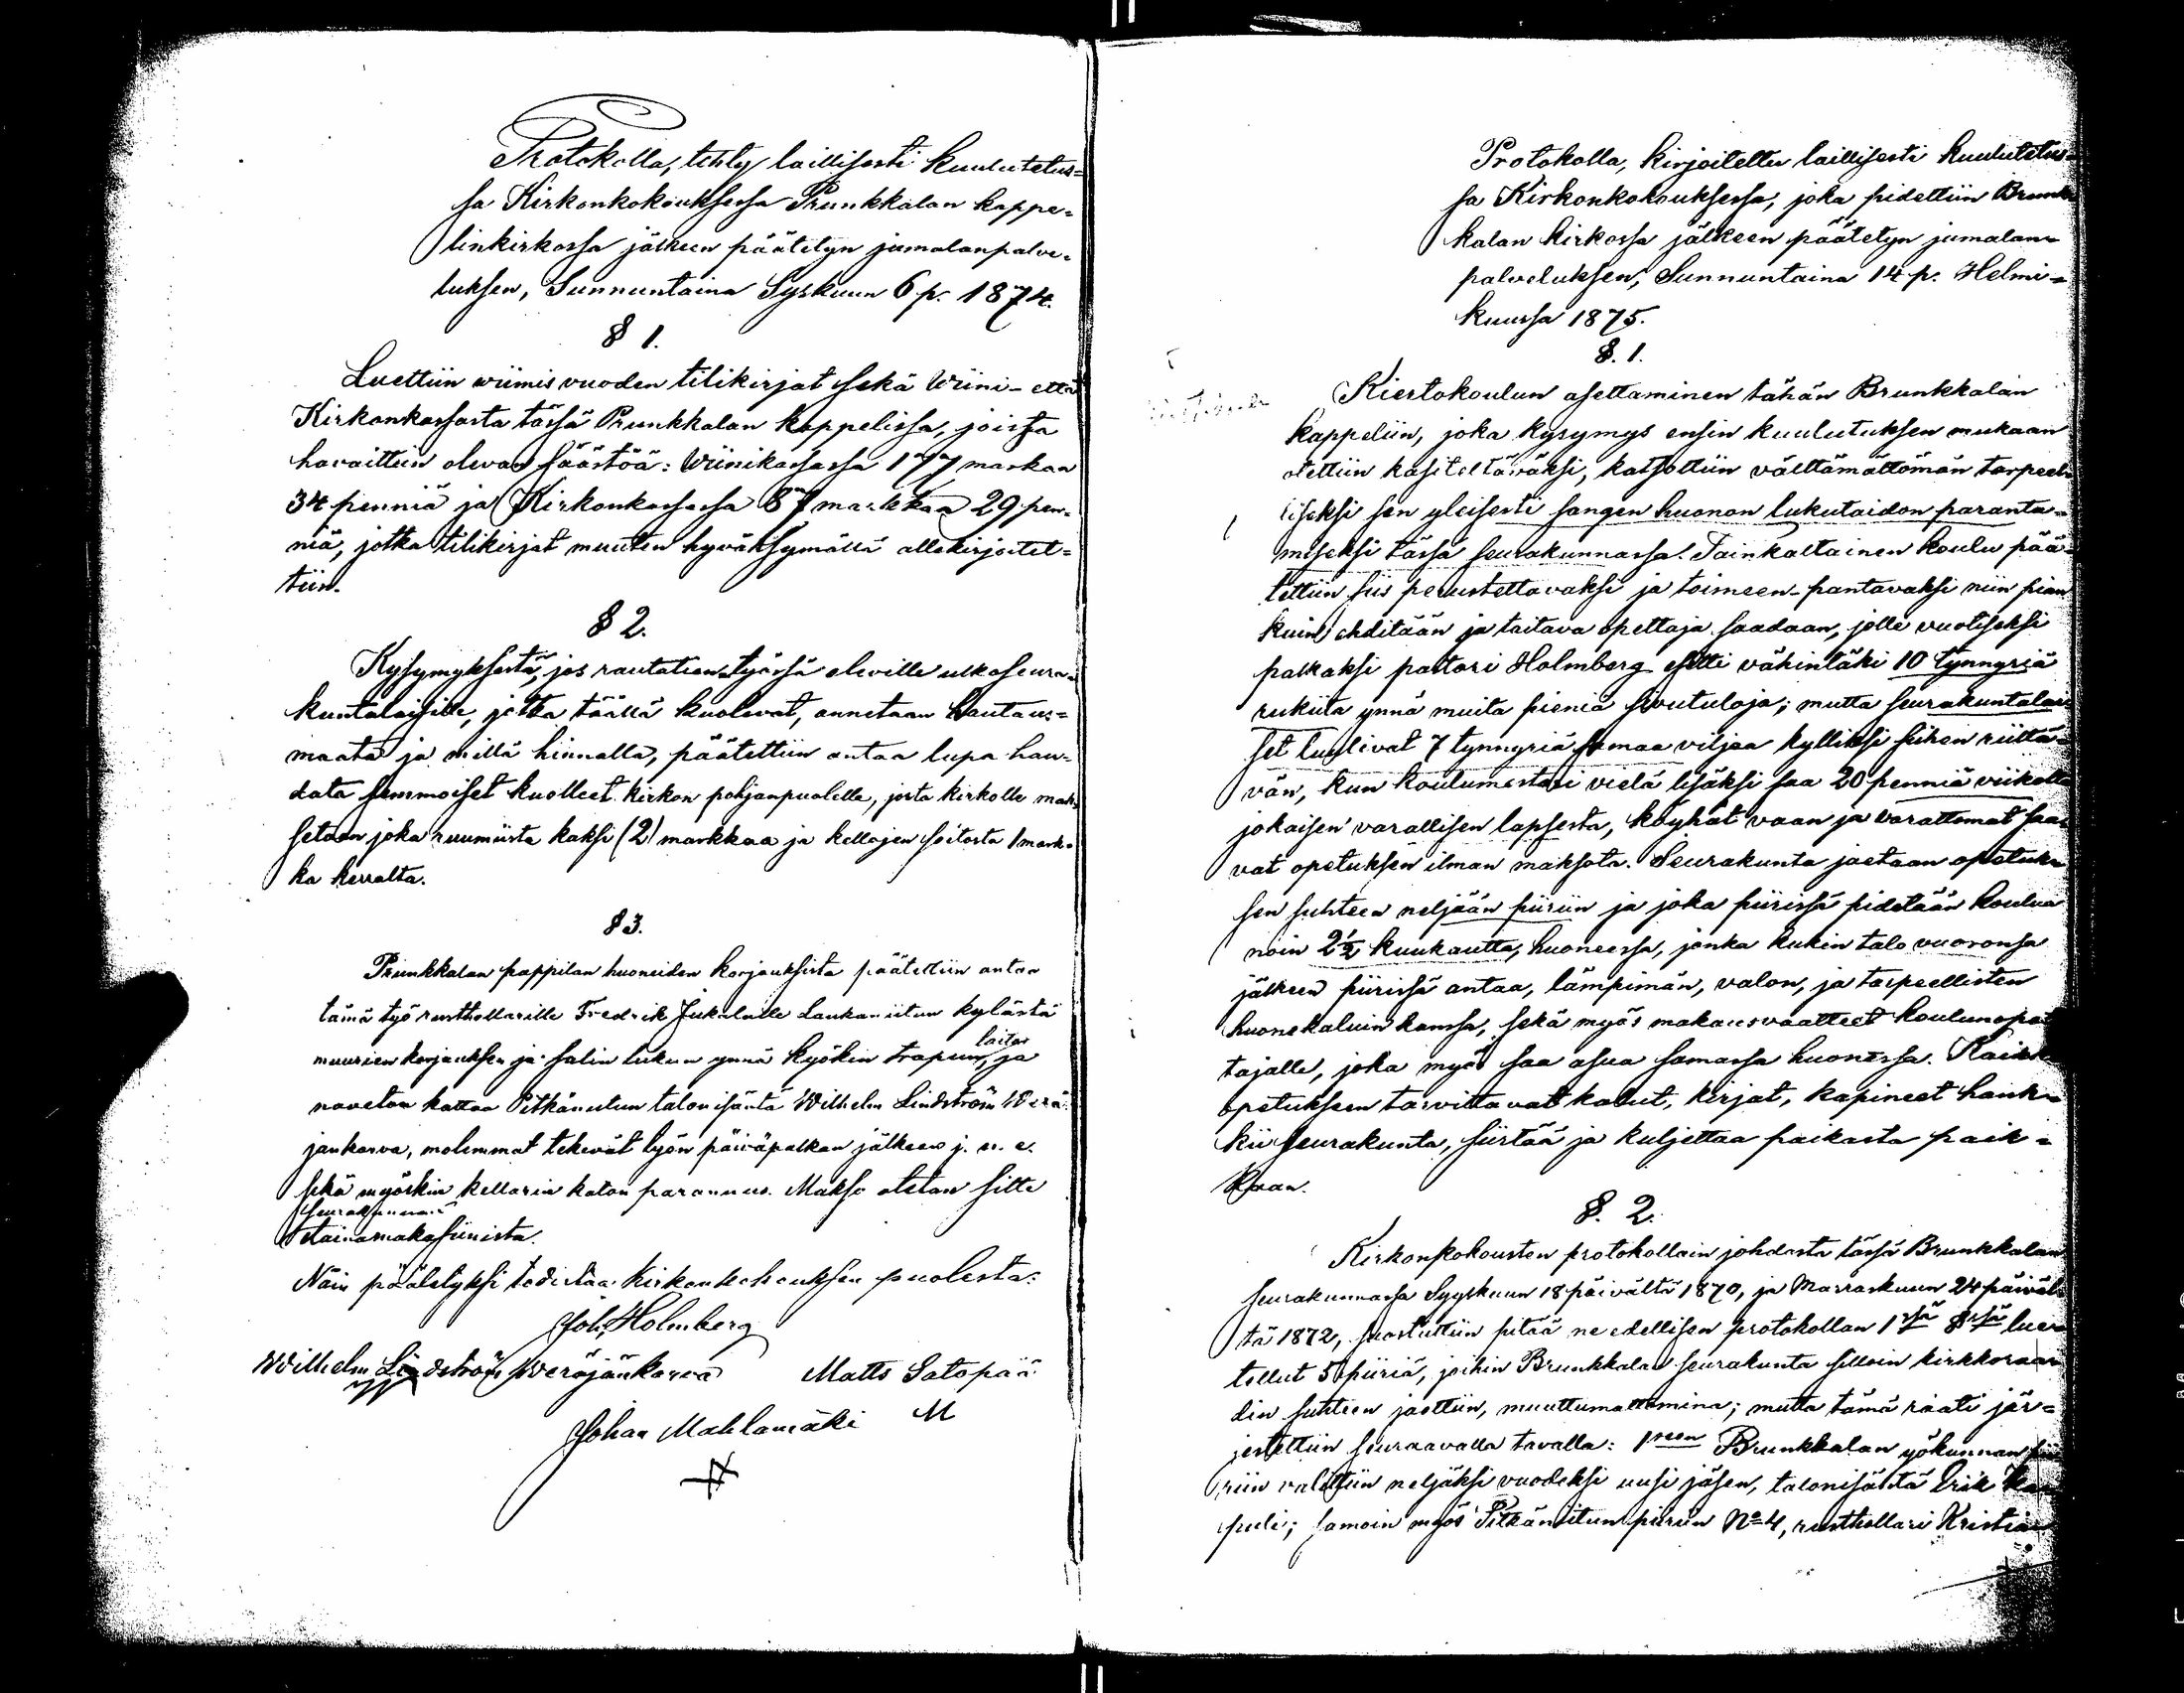 Protokolla, tehty laillisesti kuulutetus=
sa Kirkonkokouksessa Prunkkalan kappe=
linkirkossa jälkeen päätetyn jumalanpalve=
luksen, Sunnuntaina Syskuun 6 p. 1874.
§ 1.
Luettiin wiimis vuoden tilikirjat sekä Wiini- että
Kirkonkassasta tässä Prunkkalan kappelissa, joissa
havaittiin olevan säästöä: Wiinikassassa 177 markan
34 penniä ja Kirkonkassassa 87 markkaa 29 pen=
niä, jotka tilikirjat muuten hyväksymällä allekirjoitet=
tiin.
§ 2.
Kysymyksestä, jos rautatien-työssä oleville ulkoseura=
kuntalaisille, jotka täällä kuolevat, annetaan hautaus=
maata ja millä hinnalla, päätettiin antaa lupa hau=
data semmoiset kuolleet kirkon pohjanpuolelle, josta kirkolle mak=
setaan joka ruumiista kaksi (2) markkaa ja kellojen soitosta 1 mark=
ka kerralta.
§ 3.
Prunkkalan pappilan huoneiden korjauksista päätettiin antaa
tämä työ rusthollarille Fredrik Jukalalle Laukaniitun kylästä
muurien korjauksen ja salin lukun ynnä kyökin trapun, ja
laiton
navetan kattaa Pitkäniitun talonisäntä Wilhelm Lindström Werä=
jänkorva, molemmat tekevät työn päiväpalkan jälkeen j. n. e.
sekä myöskin kellarin katon parannus. Makso otetan sitte
seurakunnan
lainamakasiinista.
Näin päätetyksi todistaa Kirkonkokouksen puolesta:
Joh. Holmberg
Wilhelm Lindström Weräjänkorva Matts Satopää
Johan Mahlamäki M
Protokolla, kirjoitettu laillisesti kuulutetus=
sa Kirkonkokouksessa, joka pidettiin Brunk=
kalan kirkossa jälkeen päätetyn jumalan=
palveluksen, Sunnuntaina 14 p. Helmi=
kuussa 1875.
§. 1.
Kiertokoulun asettaminen tähän Brunkkalan
kappeliin, joka kysymys ensin kuulutuksen mukaan
otettiin käsiteltäväksi, katsottiin välttämättömän tarpeel=
liseksi sen yleisesti sangen huonon lukutaidon paranta=
miseksi tässä seurakunnassa. Tainkaltainen koulu pää=
tettiin siis perustettavaksi ja toimeen-pantavaksi niin pian
kuin ehditään ja taitava opettaja saadaan, jolle vuotiseksi
palkaksi pastori Holmberg esitti vähintäki 10 tynnyriä
rukiita ynnä muita pieniä sivutuloja; mutta seurakuntalai=
set luulivat 7 tynnyriä samaa viljaa kylliksi siihen riittä=
vän, kun koulumestari vielä lisäksi saa 20 penniä viikolta
jokaisen varallisen lapsesta, köyhät vaan ja varattomat saa=
vat opetuksen ilman maksota. Seurakunta jaetaan opetuk=
sen suhteen neljään piiriin ja joka piirissä pidetään koulua
noin 2½ kuukautta, huoneessa, jonka kukin talo vuoronsa
jälkeen piirissä antaa, lämpimän, valon, ja tarpeellisten
huonekaluin kanssa, sekä myös makausvaatteet koulunopet=
tajalle, joka myös saa asua samassa huonessa. Kaikki
opetukseen tarvittavat kalut, kirjat, kapineet hank=
kii seurakunta, siirtää ja kuljettaa paikasta paik=
kaan.
§. 2.
Kirkonkokousten protokollain johdosta tässä Brunkkalan
seurakunnassa Syyskuun 18 päivältä 1870, ja Marraskuun 24 päiväl=
tä 1872, suostuttiin pitää ne edellisen protokollan 1ssä §ssä lue=
tellut 5 piiriä, joihin Brunkkalan seurakunta silloin kirkkoraa=
din suhteen jaettiin, muuttumattomina; mutta tämä raati jär=
jestettiin seuraavalla tavalla: 1seen Brunkkalan yökunnan pii=
riin valittiin neljäksi vuodeksi uusi jäsen, talonisäntä Erik
puli; samoin myös Pitkäniitun piiriin No 4, rusthollari Kristian